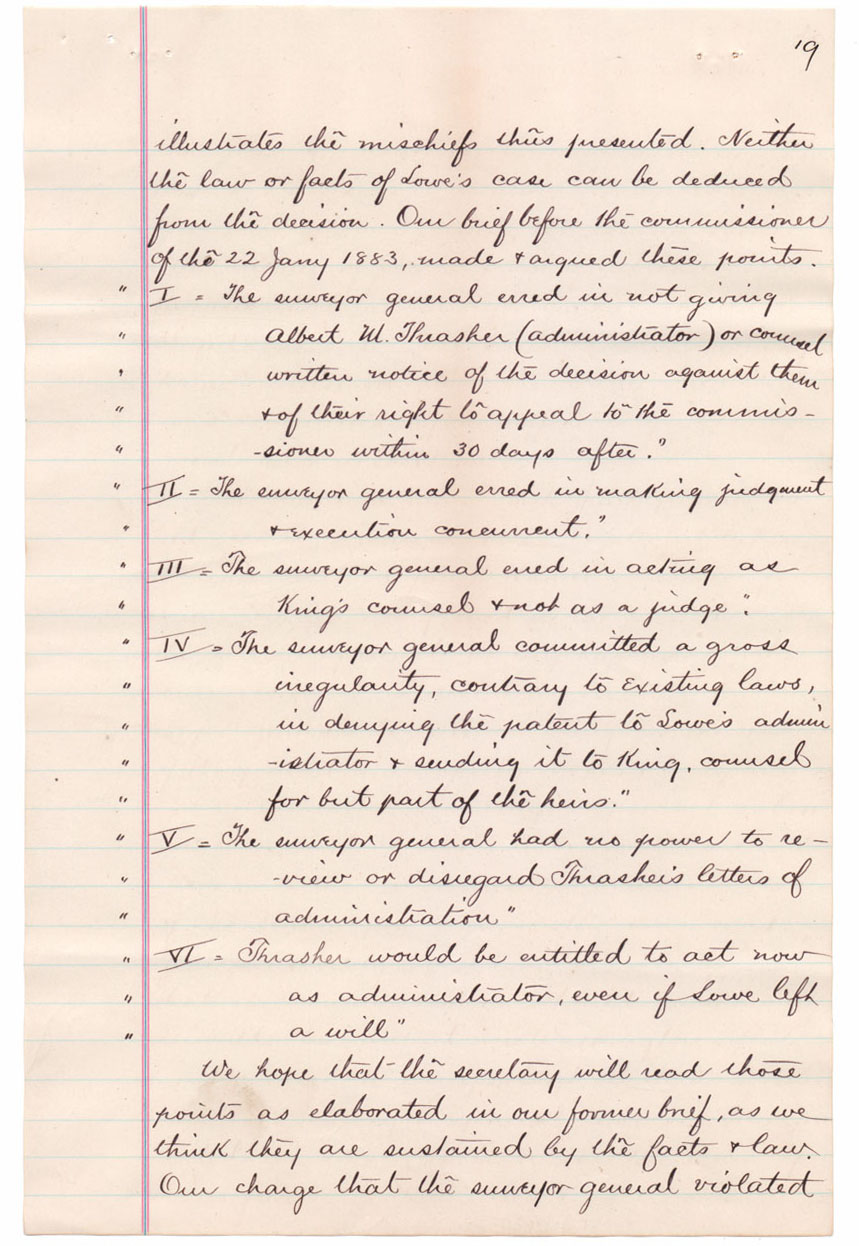 19
illustrates the mischiefs thus presented. Neither
the law or facts of Lowe's case can be deduced
from the decision. Our brief before the commissioner
of the 22 Jany 1883, made & argued these points.
" I = The surveyor general erred in not giving
" Albert M. Thrasher (administrator) or counsel
" written notice of the decision against them
" & of their right to appeal to the commis-
" -sioner within 30 days after."
" II = The surveyor general erred in making judgment
" & execution concurrent."
" III = The surveyor general erred in acting as
" King's counsel & not as a judge".
" IV = The surveyor general committed a gross
" irregularity, contrary to existing laws,
" in denying the patent to Lowe's admin
" -istrator & sending it to King, counsel
" for but part of the heirs."
" V = The surveyor general had no power to re-
" -view or disregard Thrasher's letters of
" administration"
" VI = Thrasher would be entitled to act now
" as administrator, even if Lowe left
" a will"
We hope that the secretary will read those
points as elaborated in our former brief, as we
think they are sustained by the facts & law.
Our charge that the surveyor general violated